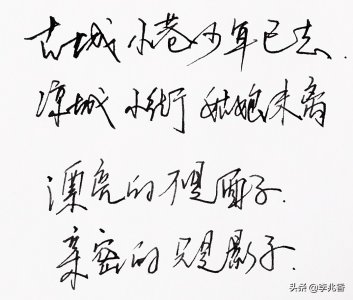 古城小巷少年已去.
凉城小街姑娘未离
漂亮的不是面子.
亲密的只是影子.
头条@李兆香